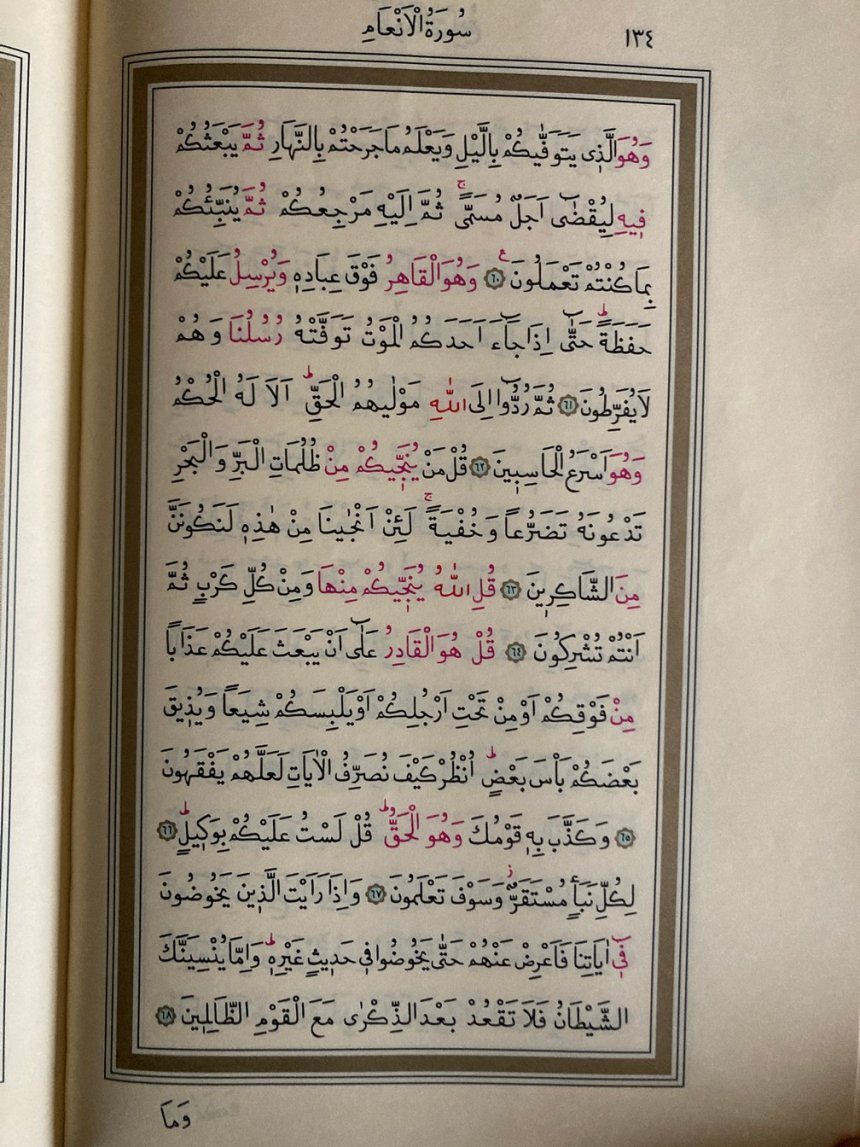 سُورَةُ الْاَنْعَامِ
١٣٤
وَهُوَ الَّذٖى يَتَوَفّٰيكُمْ بِالَّيْلِ وَيَعْلَمُ مَا جَرَحْتُمْ بِالنَّهَارِ ثُمَّ يَبْعَثُكُمْ
فٖيهِ لِيُقْضٰٓى اَجَلٌ مُسَمًّىۚ ثُمَّ اِلَيْهِ مَرْجِعُكُمْ ثُمَّ يُنَبِّئُكُمْ
بِمَا كُنْتُمْ تَعْمَلُونَࣖ ﴿٦٠﴾ وَهُوَ الْقَاهِرُ فَوْقَ عِبَادِهٖ وَيُرْسِلُ عَلَيْكُمْ
حَفَظَةًؕ حَتّٰٓى اِذَا جَٓاءَ اَحَدَكُمُ الْمَوْتُ تَوَفَّتْهُ رُسُلُنَا وَهُمْ
لَا يُفَرِّطُونَ ﴿٦١﴾ ثُمَّ رُدُّٓوا اِلَى اللّٰهِ مَوْلٰيهُمُ الْحَقِّؕ اَلَا لَهُ الْحُكْمُ
وَهُوَ اَسْرَعُ الْحَاسِبٖينَ ﴿٦٢﴾ قُلْ مَنْ يُنَجّٖيكُمْ مِنْ ظُلُمَاتِ الْبَرِّ وَالْبَحْرِ
تَدْعُونَهُ تَضَرُّعاً وَخُفْيَةًۚ لَئِنْ اَنْجٰينَا مِنْ هٰذِهٖ لَنَكُونَنَّ
مِنَ الشَّاكِرٖينَ ﴿٦٣﴾ قُلِ اللّٰهُ يُنَجّٖيكُمْ مِنْهَا وَمِنْ كُلِّ كَرْبٍ ثُمَّ
اَنْتُمْ تُشْرِكُونَ ﴿٦٤﴾ قُلْ هُوَ الْقَادِرُ عَلٰٓى اَنْ يَبْعَثَ عَلَيْكُمْ عَذَاباً
مِنْ فَوْقِكُمْ اَوْ مِنْ تَحْتِ اَرْجُلِكُمْ اَوْ يَلْبِسَكُمْ شِيَعاً وَيُذٖيقَ
بَعْضَكُمْ بَأْسَ بَعْضٍؕ اُنْظُرْ كَيْفَ نُصَرِّفُ الْاٰيَاتِ لَعَلَّهُمْ يَفْقَهُونَ
﴿٦٥﴾ وَكَذَّبَ بِهٖ قَوْمُكَ وَهُوَ الْحَقُّؕ قُلْ لَسْتُ عَلَيْكُمْ بِوَكٖيلٍؕ ﴿٦٦﴾
لِكُلِّ نَبَأٍ مُسْتَقَرٌّؗ وَسَوْفَ تَعْلَمُونَ ﴿٦٧﴾ وَاِذَا رَاَيْتَ الَّذٖينَ يَخُوضُونَ
فٖٓى اٰيَاتِنَا فَاَعْرِضْ عَنْهُمْ حَتّٰى يَخُوضُوا فٖى حَدٖيثٍ غَيْرِهٖؕ وَاِمَّا يُنْسِيَنَّكَ
الشَّيْطَانُ فَلَا تَقْعُدْ بَعْدَ الذِّكْرٰى مَعَ الْقَوْمِ الظَّالِمٖينَ ﴿٦٨﴾
وَمَا